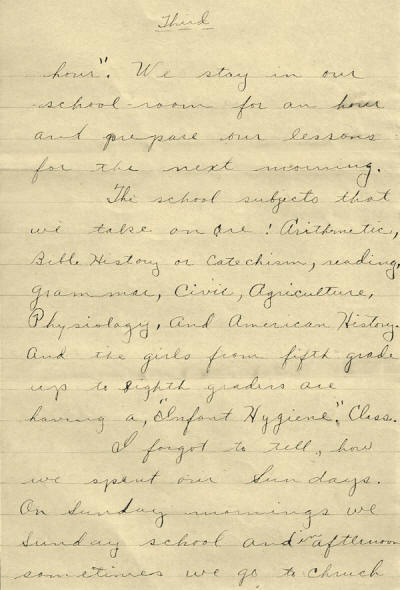 Third
hour". We stay in our
school-room for an hour
and prepare our lessons
for the next morning.
The school subjects that
we take on are! Arithmetic,
Bible History or Catechism, reading,
grammar, Civic, Agriculture,
Physiology, And American History.
And the girls from fifth grade
up to eighth graders are
having a, "Infant Hygiene." Class.
I forgot to tell, how
we spent our Sundays.
On Sunday mornings we
Sunday school and in afternoon
sometimes we go to chruch